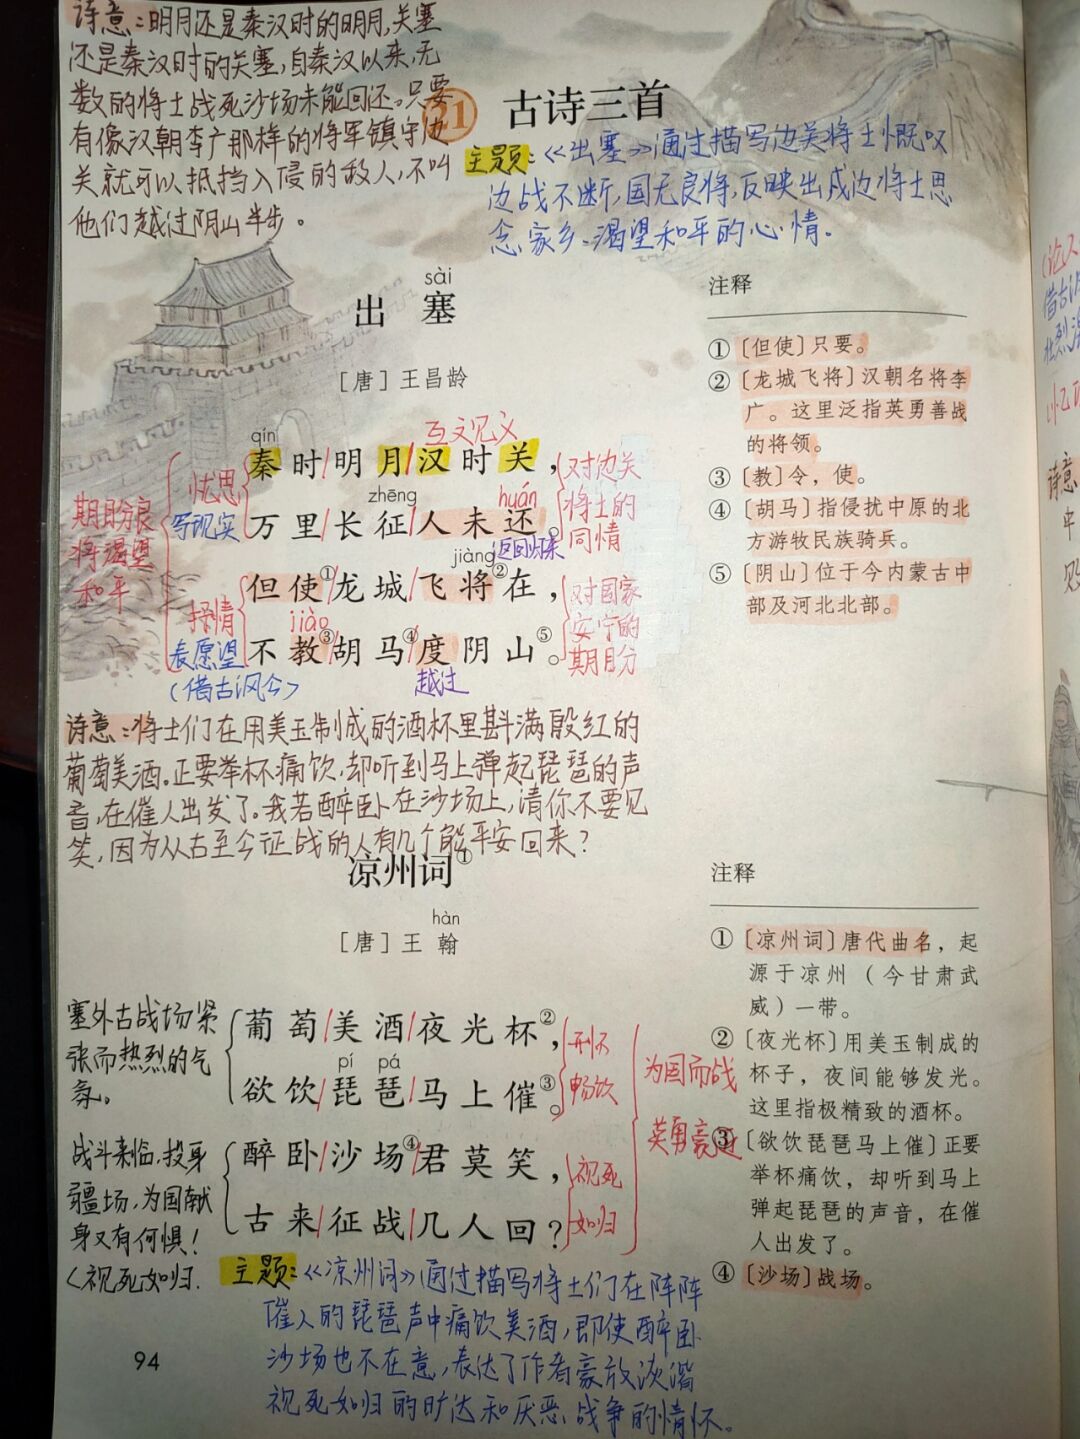 诗意：明月还是秦汉时的明月，关塞
还是秦汉时的关塞，自秦汉以来，无
数的将士战死沙场未能回还。只要
有像汉朝李广那样的将军镇守边
关就可以抵挡入侵的敌人，不叫
他们越过阴山半步。
31 古诗三首
主题：《出塞》通过描写边关将士慨叹
边战不断，国无良将，反映出戍边将士思
念家乡、渴望和平的心情。
sài
出 塞
［唐］王昌龄
互文见义
qín
秦时明月汉时关，
zhēng huán
万里长征人未还。
返回归来
jiàng
但使①龙城飞将②在，
jiào
不教③胡马④度阴山⑤。
越过
期盼良
将渴望
和平
忧思
写现实
抒情
表愿望
（借古讽今）
对边关
将士的
同情
对国家
安宁的
期盼
注释
①〔但使〕只要。
②〔龙城飞将〕汉朝名将李
广。这里泛指英勇善战
的将领。
③〔教〕令，使。
④〔胡马〕指侵扰中原的北
方游牧民族骑兵。
⑤〔阴山〕位于今内蒙古中
部及河北北部。
诗意：将士们在用美玉制成的酒杯里斟满殷红的
葡萄美酒。正要举杯痛饮，却听到马上弹起琵琶的声
音，在催人出发了。我若醉卧在沙场上，请你不要见
笑，因为从古至今征战的人有几个能平安回来？
凉州词①
hàn
［唐］王 翰
葡萄美酒夜光杯②，
pí pá
欲饮琵琶马上催③。
醉卧沙场④君莫笑，
古来征战几人回？
塞外古战场紧
张而热烈的气
氛。
战斗来临，投身
疆场，为国献
身又有何惧！
视死如归.
畅饮
视死
如归
为国而战
英勇豪迈
注释
①〔凉州词〕唐代曲名，起
源于凉州（今甘肃武
威）一带。
②〔夜光杯〕用美玉制成的
杯子，夜间能够发光。
这里指极精致的酒杯。
③〔欲饮琵琶马上催〕正要
举杯痛饮，却听到马上
弹起琵琶的声音，在催
人出发了。
④〔沙场〕战场。
主题：《凉州词》通过描写将士们在阵阵
催人的琵琶声中痛饮美酒，即使醉卧
沙场也不在意，表达了作者豪放
视死如归的旷达和厌恶战争的情怀。
94
诗意